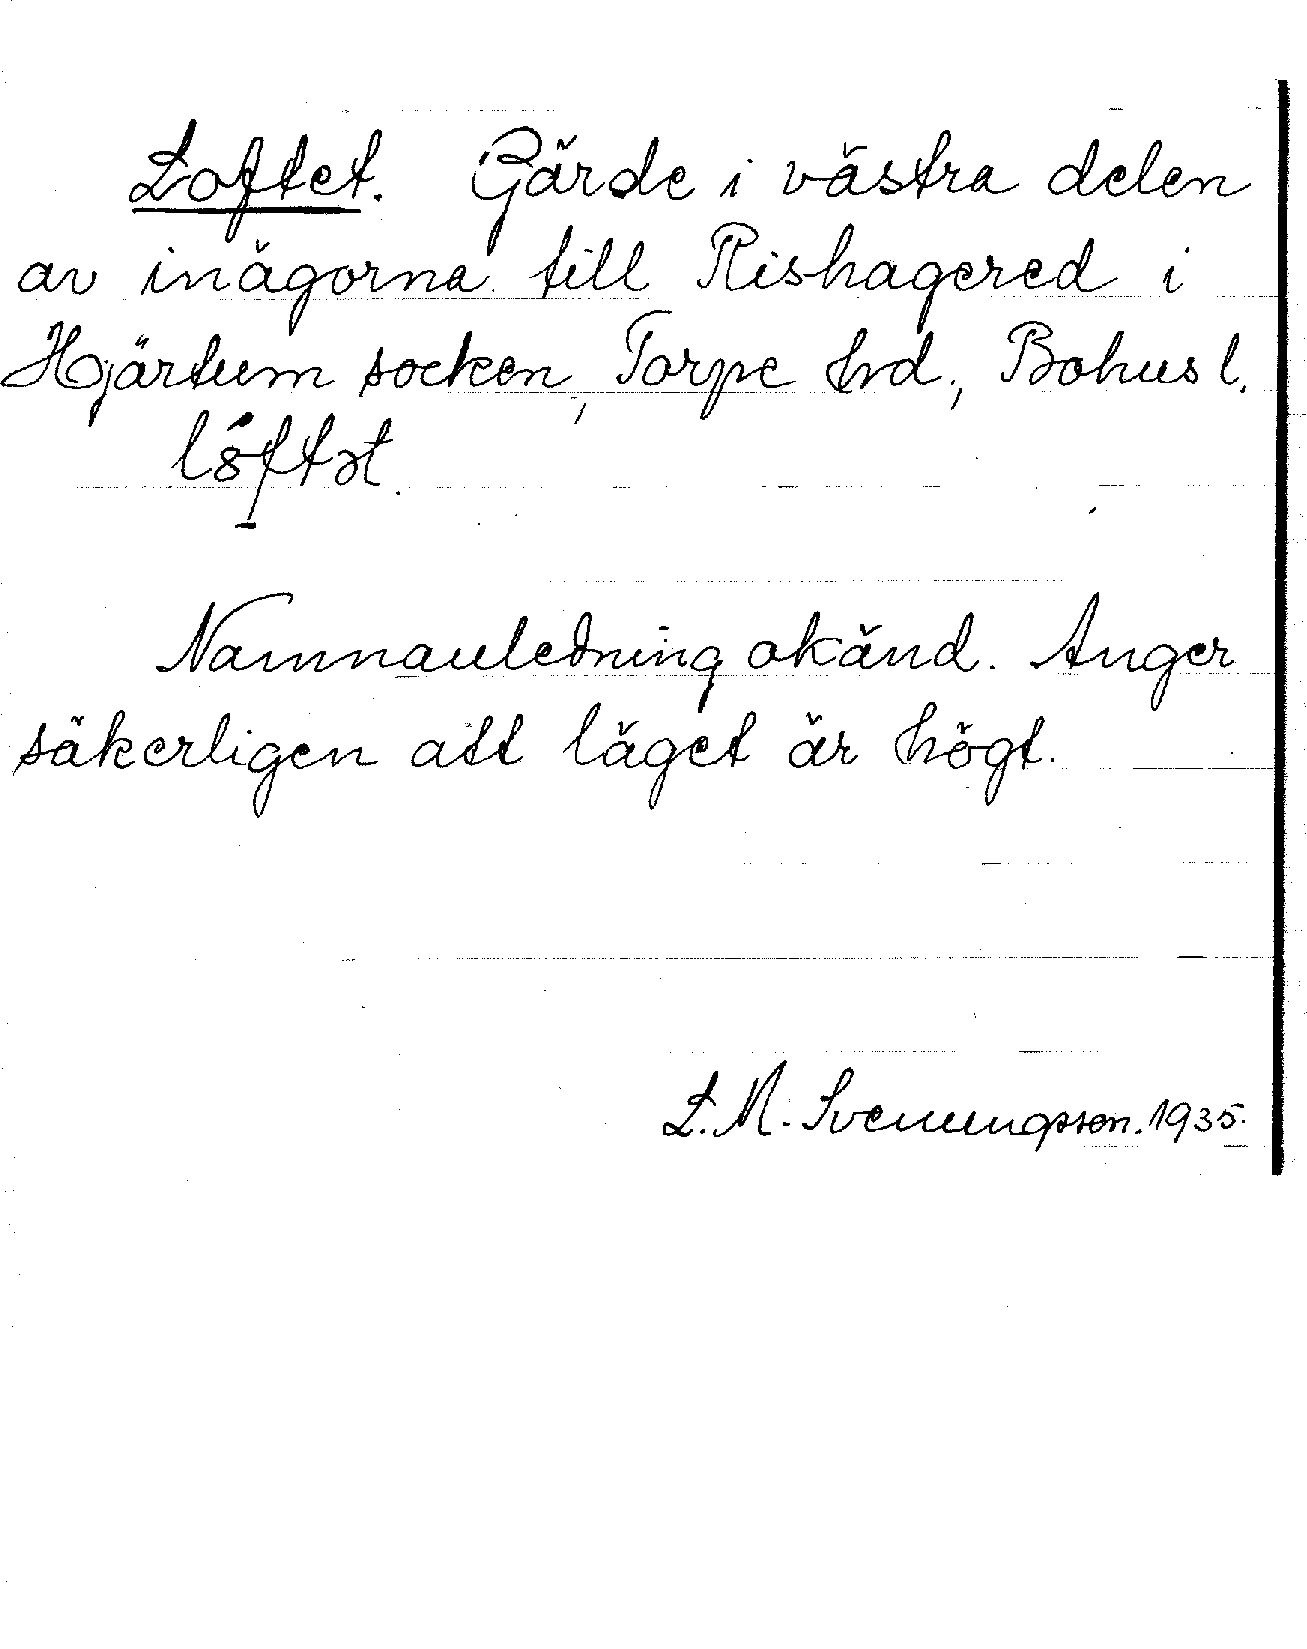 Loftet. Gärde i västra delen
av inägorna till Rishagered i
Hjärtum socken, Torpe hrd., Bohusl.
löftət.
Namnavledning okänd. Anger
säkerligen att läget är högt.
L. M. Svenungsson. 1935.